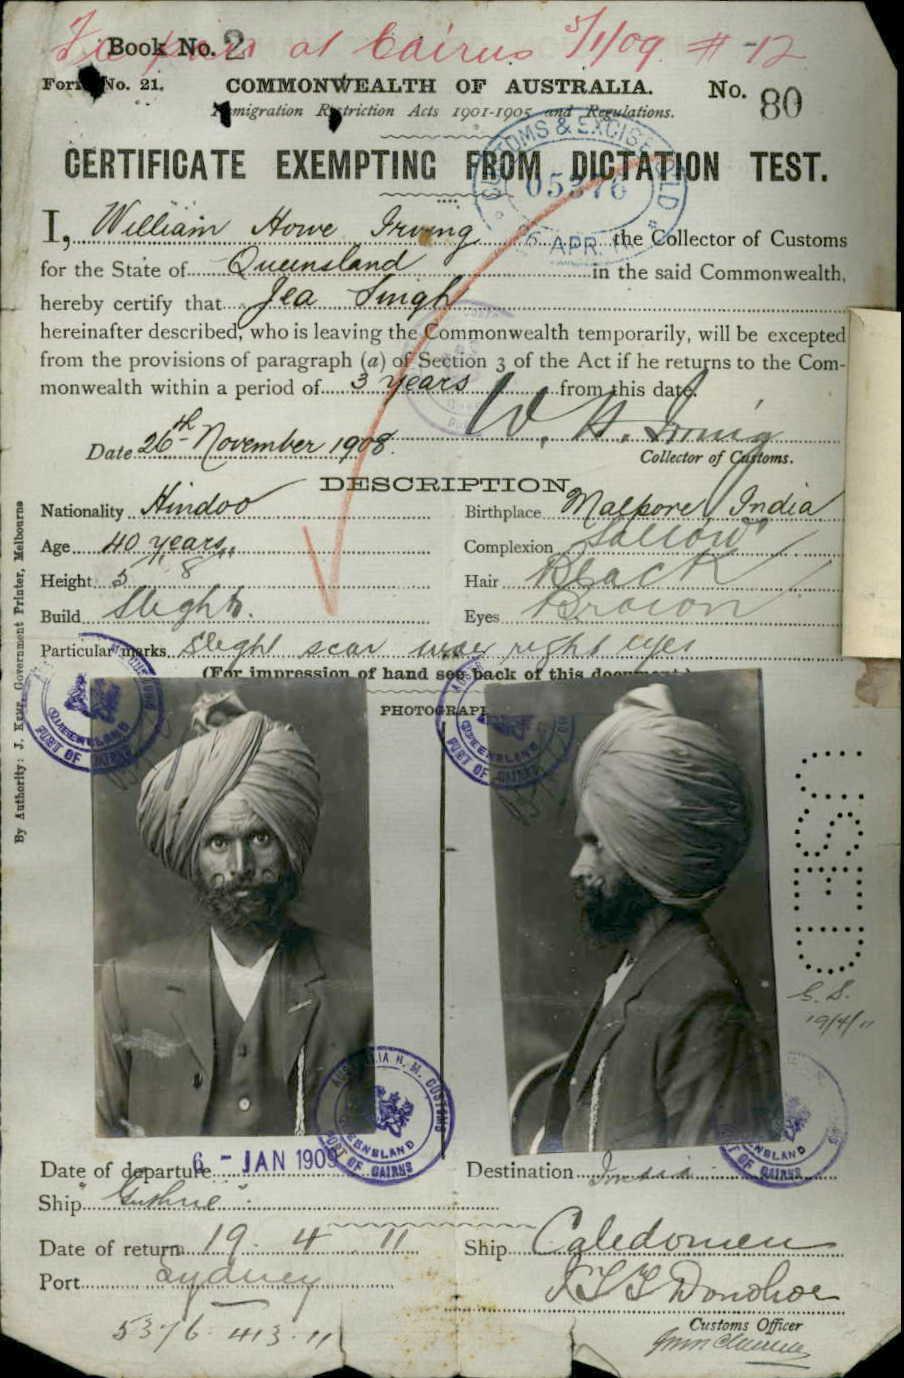 Fee paid at Cairns 5/1/09 # -12
Book No. 2
Form No. 21.
COMMONWEALTH OF AUSTRALIA.
No. 80
Immigration Restriction Acts 1901-1905 and Regulations.
CUSTOMS & EXCISE QLD
05376
APR.
CERTIFICATE EXEMPTING FROM DICTATION TEST.
I, William Howe Irving the Collector of Customs
for the State of Queensland in the said Commonwealth,
hereby certify that Jea Singh
hereinafter described, who is leaving the Commonwealth temporarily, will be excepted
from the provisions of paragraph (a) of Section 3 of the Act if he returns to the Com-
monwealth within a period of 3 years from this date.
W. H. Irving
Date 26th November 1908.
Collector of Customs.
DESCRIPTION
Nationality Hindoo
Birthplace Malpore, India
Age 40 years
Complexion Sallow
Height 5' 8"
Hair Black
Build Slight
Eyes Brown
Particular marks Slight scar near right eye
(For impression of hand see back of this document.)
PHOTOGRAPH
By Authority: J. Kemp, Government Printer, Melbourne
QUEENSLAND
PORT OF CAIRNS
QUEENSLAND
PORT OF CAIRNS
G. S.
19/4/11
AUSTRALIA H. M. CUSTOMS
QUEENSLAND
PORT OF CAIRNS
QUEENSLAND
PORT OF CAIRNS
Date of departure 6 - JAN 1909
Destination India
Ship "Guthrie"
Date of return 19. 4. 11
Ship Caledonien
Port Sydney
Donohoe
Customs Officer
5376. 413. 11